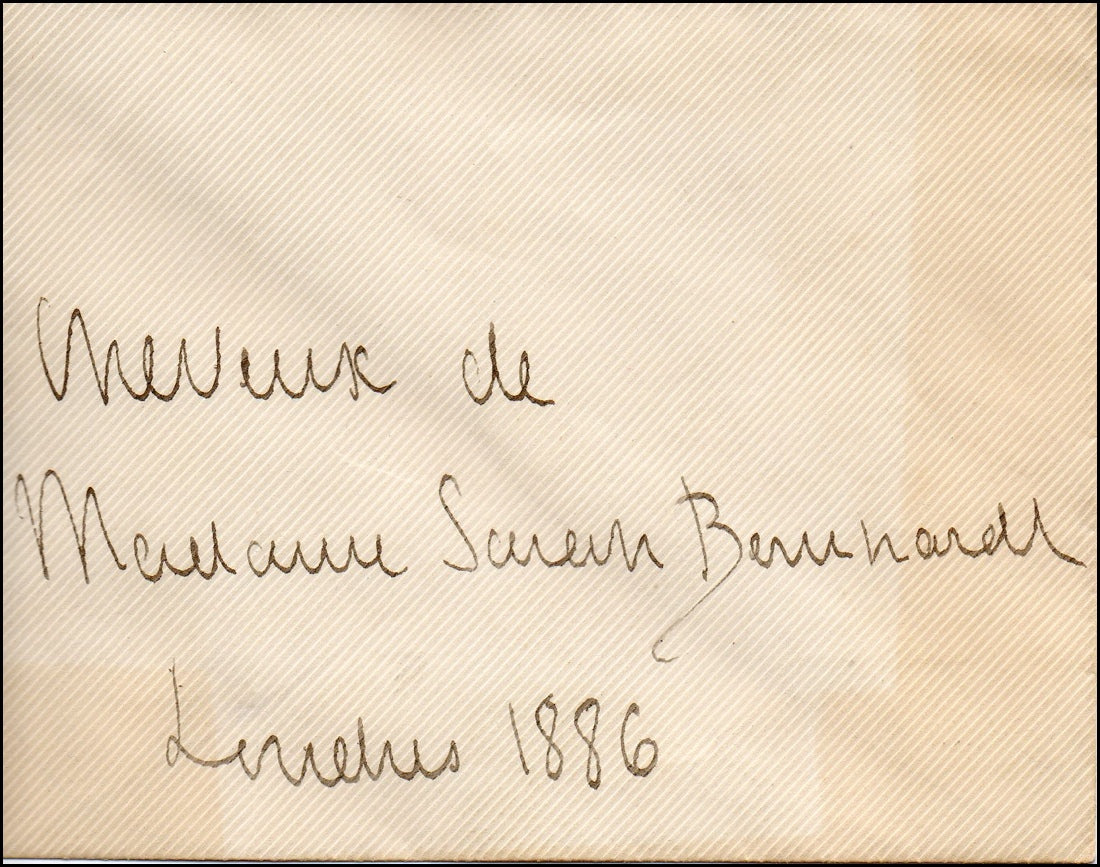 Cheveux de
Madame Sarah Bernhardt
Londres 1886